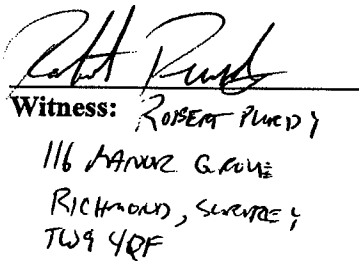 Robert Purdy
Witness: ROBERT PURDY
116 MANOR GROVE
RICHMOND, SURREY
TW9 4QF